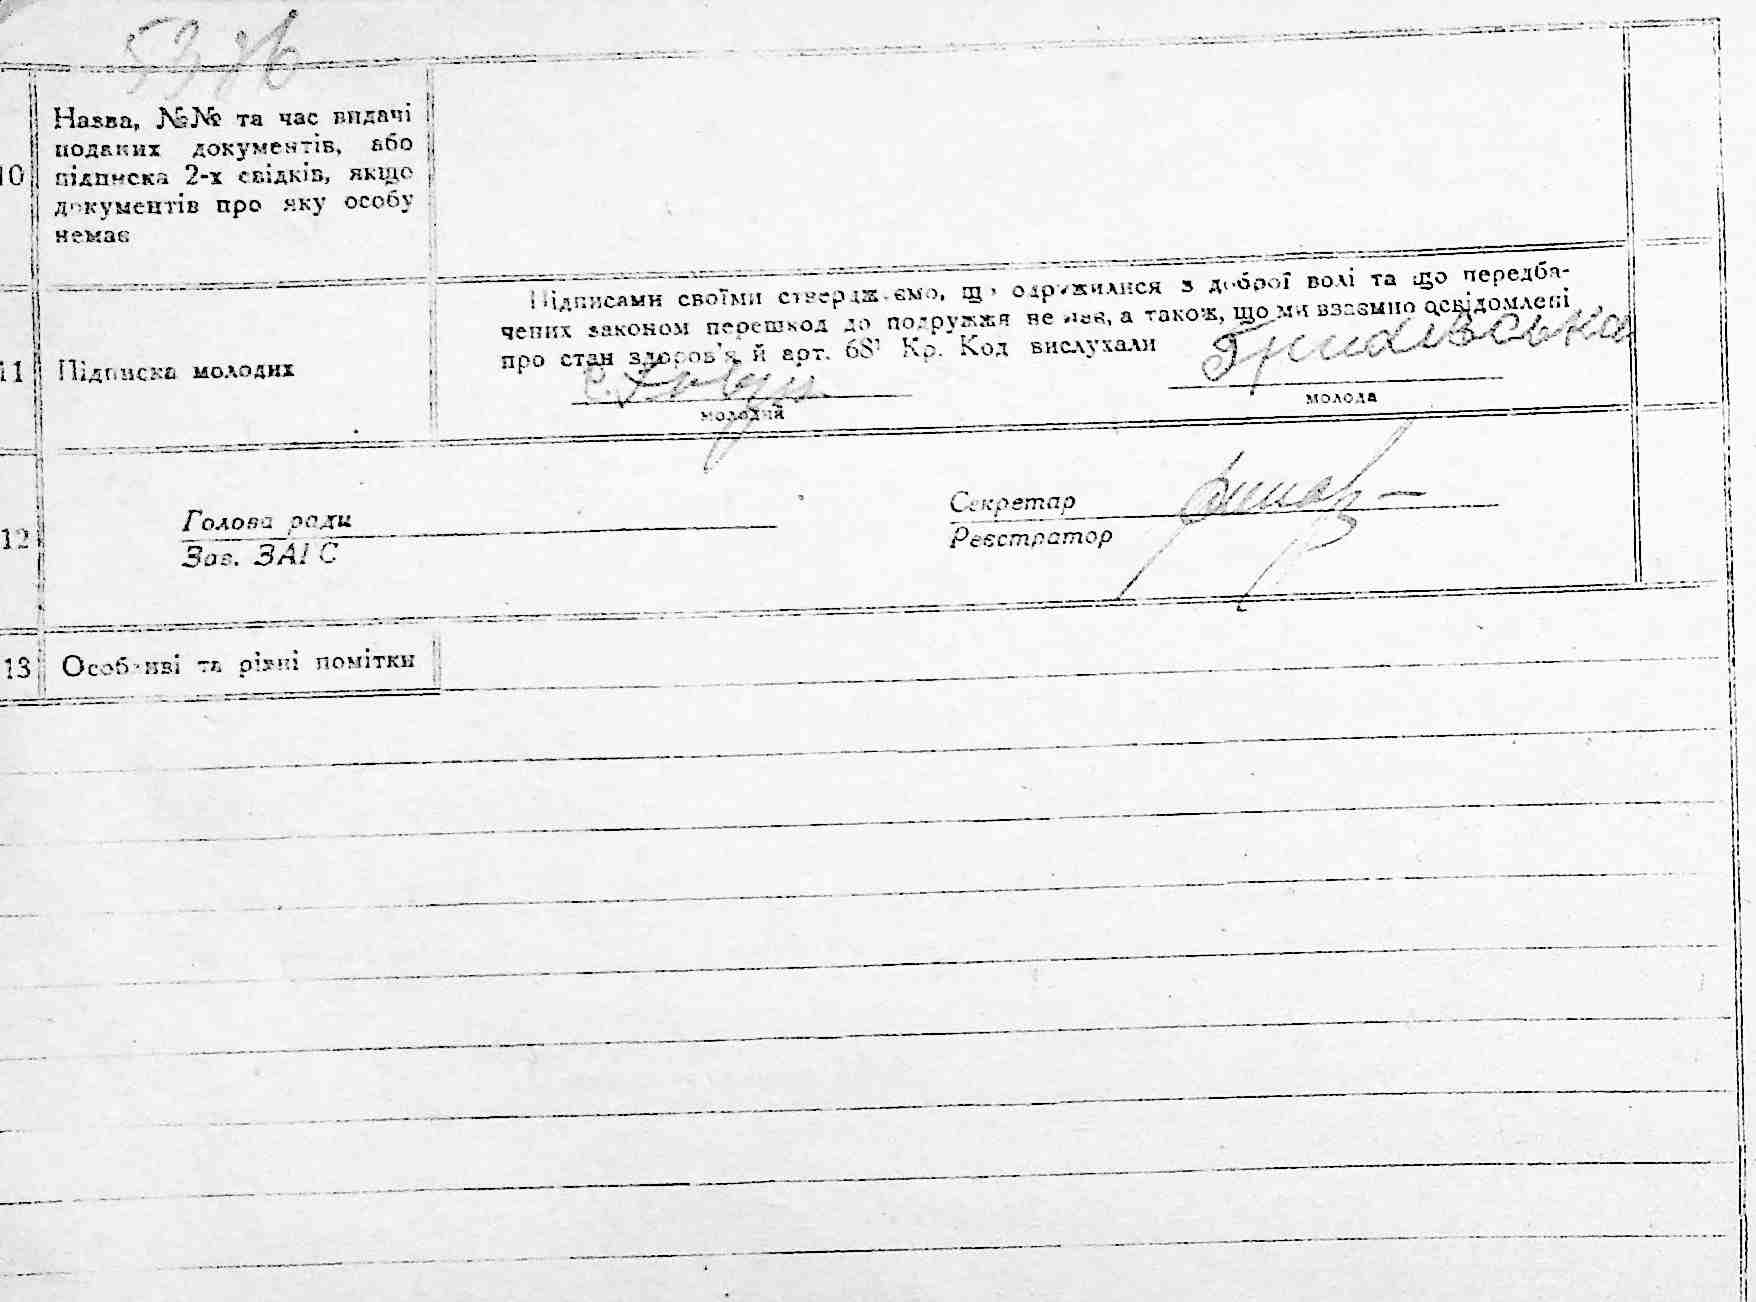 10
Назва, №№ та час видачі
поданих документів, або
підписка 2-х свідків, якщо
документів про яку особу
немає
11
Підписка молодих
Підписами своїми стверджуємо, що одружилися з доброї волі та що передба-
чених законом перешкод до подружжя немає, а також, що ми взаємно освідомлені
про стан здоров'я й арт. 68¹ Кр. Код вислухали
молодий
молода
12
Голова ради
Зав. ЗАГС
Секретар
Реєстратор
13
Особливі та різні помітки